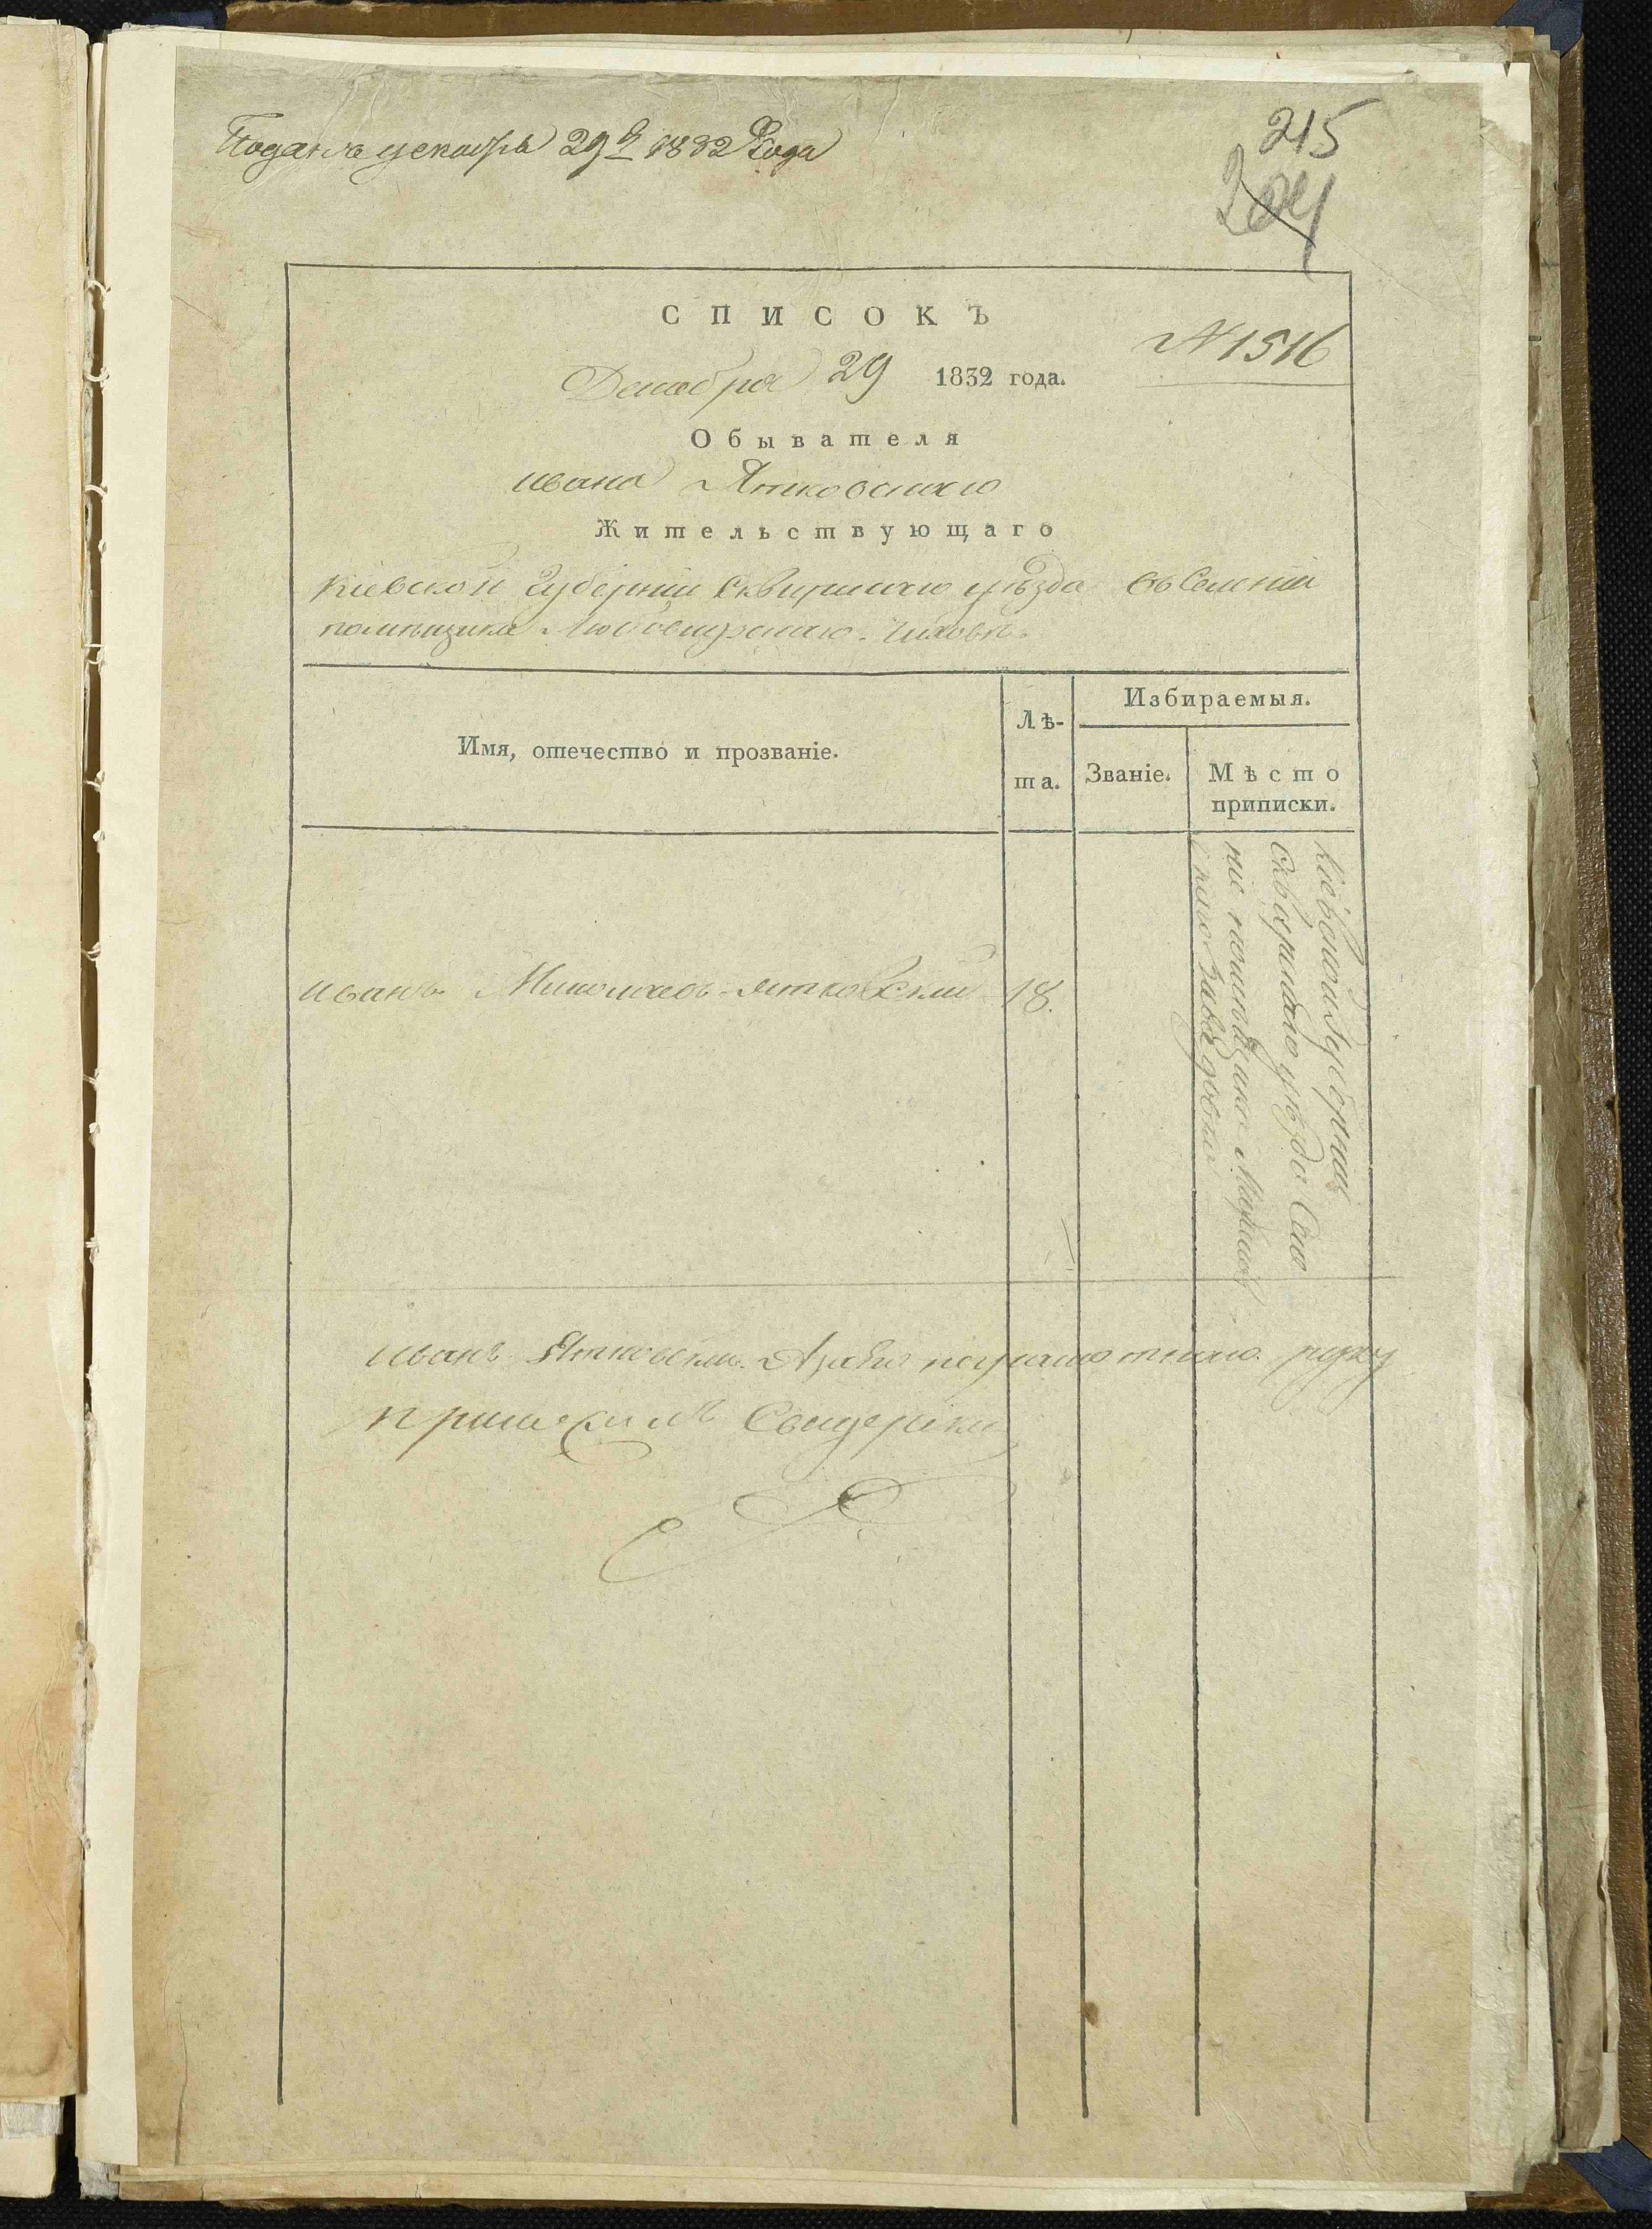 Подана декабря 29 1832 Года
215
204
СПИСОКЪ
N 1516
Декабря 29 1832 года.
Обывателя
Ивана Ятковскаго
Жительствующаго
Кіевской Губерніи Сквирскаго уѣзда въ Селеніи
помѣщика
Имя, отечество и прозваніе.
Лѣ-
та.
Избираемыя.
Званіе.
Мѣсто
приписки.
Иванъ Миколаевъ Ятковскии
18.
Кіевской Губерніи
Сквирскаго уѣзда Селе
ніе помѣщика
Иванъ Ятковски А за его неграмотнаго руку
приложилъ